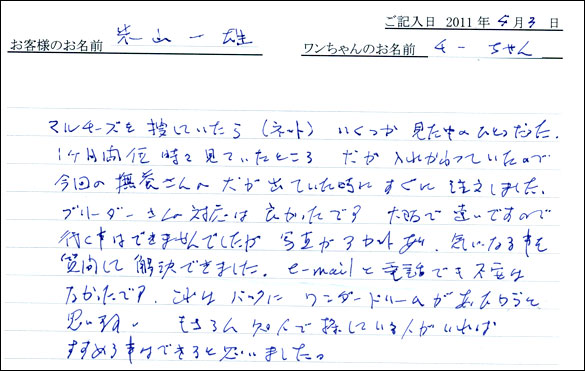 ご記入日 2011年5月3日
お客様のお名前 柴山一雄 ワンちゃんのお名前 チーちゃん
マルチーズを捜していたら(ネット)いくつか見た中のひとつだった。
1ケ月間位時々見ていたところ 犬が入れかわっていたので
今回の撫養さんの犬が出ていた時にすぐに注文しました。
ブリーダーさんの対応は良かったです 大阪で遠いですので
行く事はできませんでしたが 写真が3カットあり、気になる事を
質問して解決できました。e-mailと電話でも不安は
なかったです。これはバックにワンダードリームがあったからと
思います。もちろん知人で探している人がいれば
すすめる事はできると思いました。